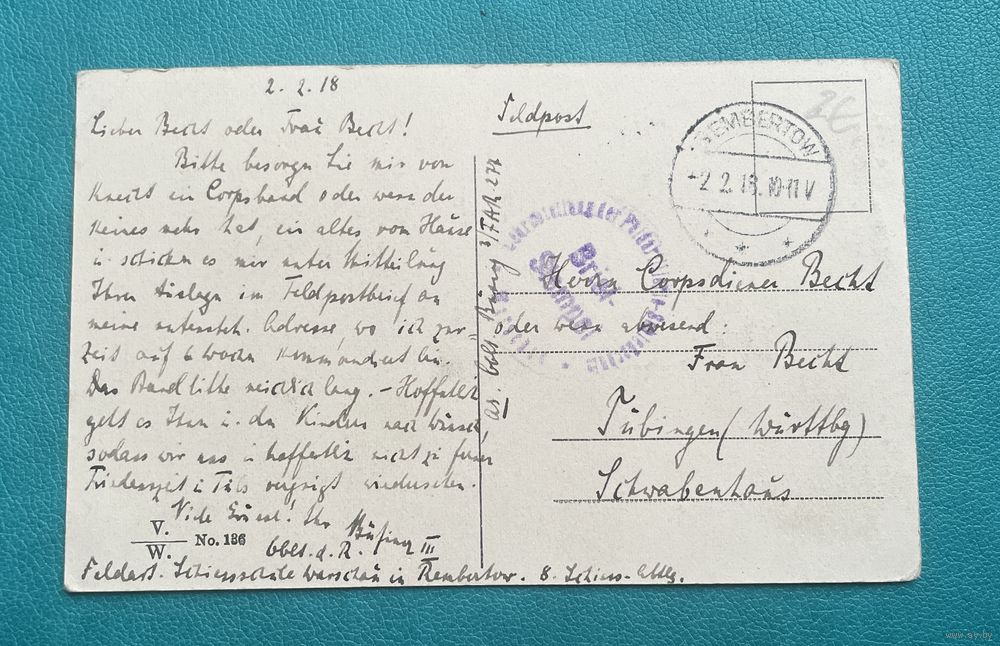 2. 2. 18
Lieber Becht oder Frau Becht!
Bitte besorgen Sie mir von
Knecht ein Corpsband oder wenn der
keines mehr hat, ein altes vom Hause
u. schicken es mir unter Mitteilung
Ihrer Auslagen im Feldpostbrief an
meine untensteh. Adresse, wo ich zur-
zeit auf 6 Wochen kommandiert bin.
Das Band bitte reichlich lang. – Hoffentlich
geht es Ihnen u. den Kindern nach Wunsch,
sodass wir uns hoffentlich nicht zu ferner
Friedenszeit i. Tüb. vergnügt wiedersehen.
Viele Grüsse! Ihr
III
V.
W.
No. 136
Feldart. Schiessschule Warschau in Rembertow. 8. Schiess-Abtlg.
FAR 274
Feldpost
REMBERTOW
-2.2.18.10-11V
Herrn Corpsdiener Becht
oder wenn abwesend:
Frau Becht
Tübingen (Württbg)
Schwabenhaus
Brief-
Stempel
www.ay.by